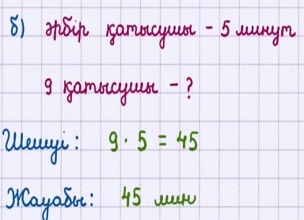 б) әрбір қатысушы - 5 минут
9 қатысушы - ?
Шешуі: 9 · 5 = 45
Жауабы: 45 мин